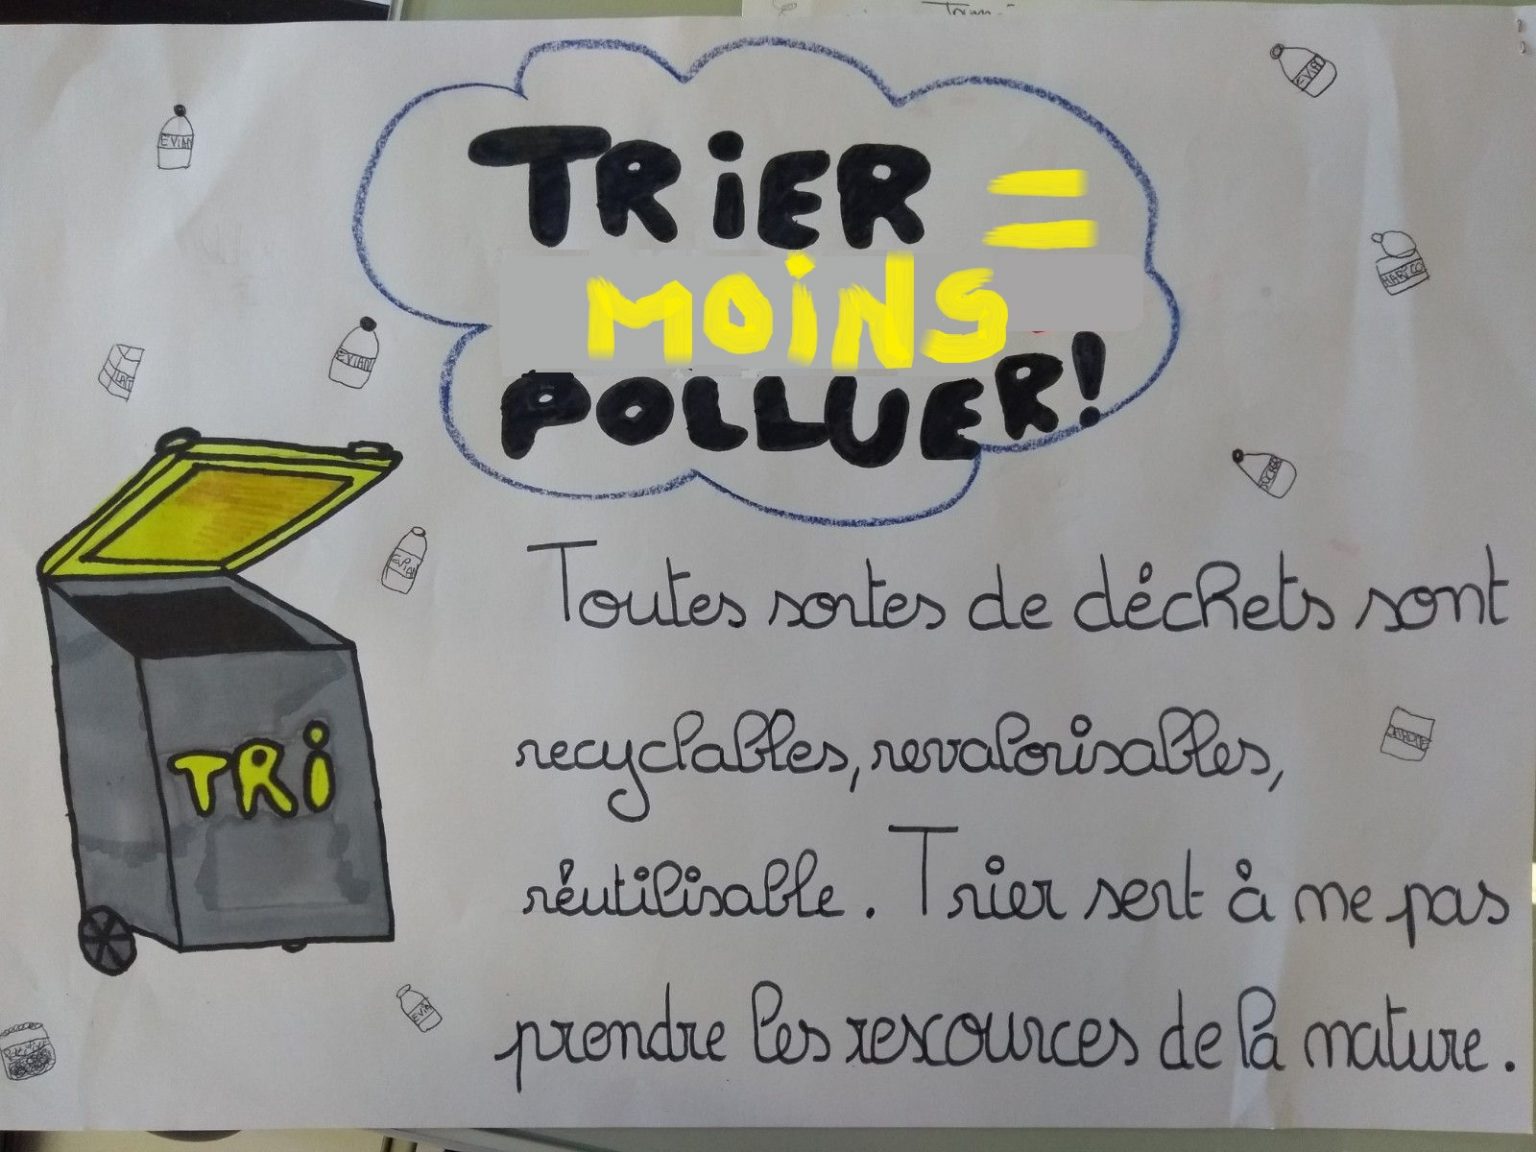 TRiER =
MOiNS
POLLUER!
EViAN
EViAN
HARiCO
EViAN
LAiT
EViAN
Toutes sortes de déchets sont
recyclables, revalorisables,
TRi
réutilisable. Trier sert à ne pas
EViAN
prendre les rescources de la nature.